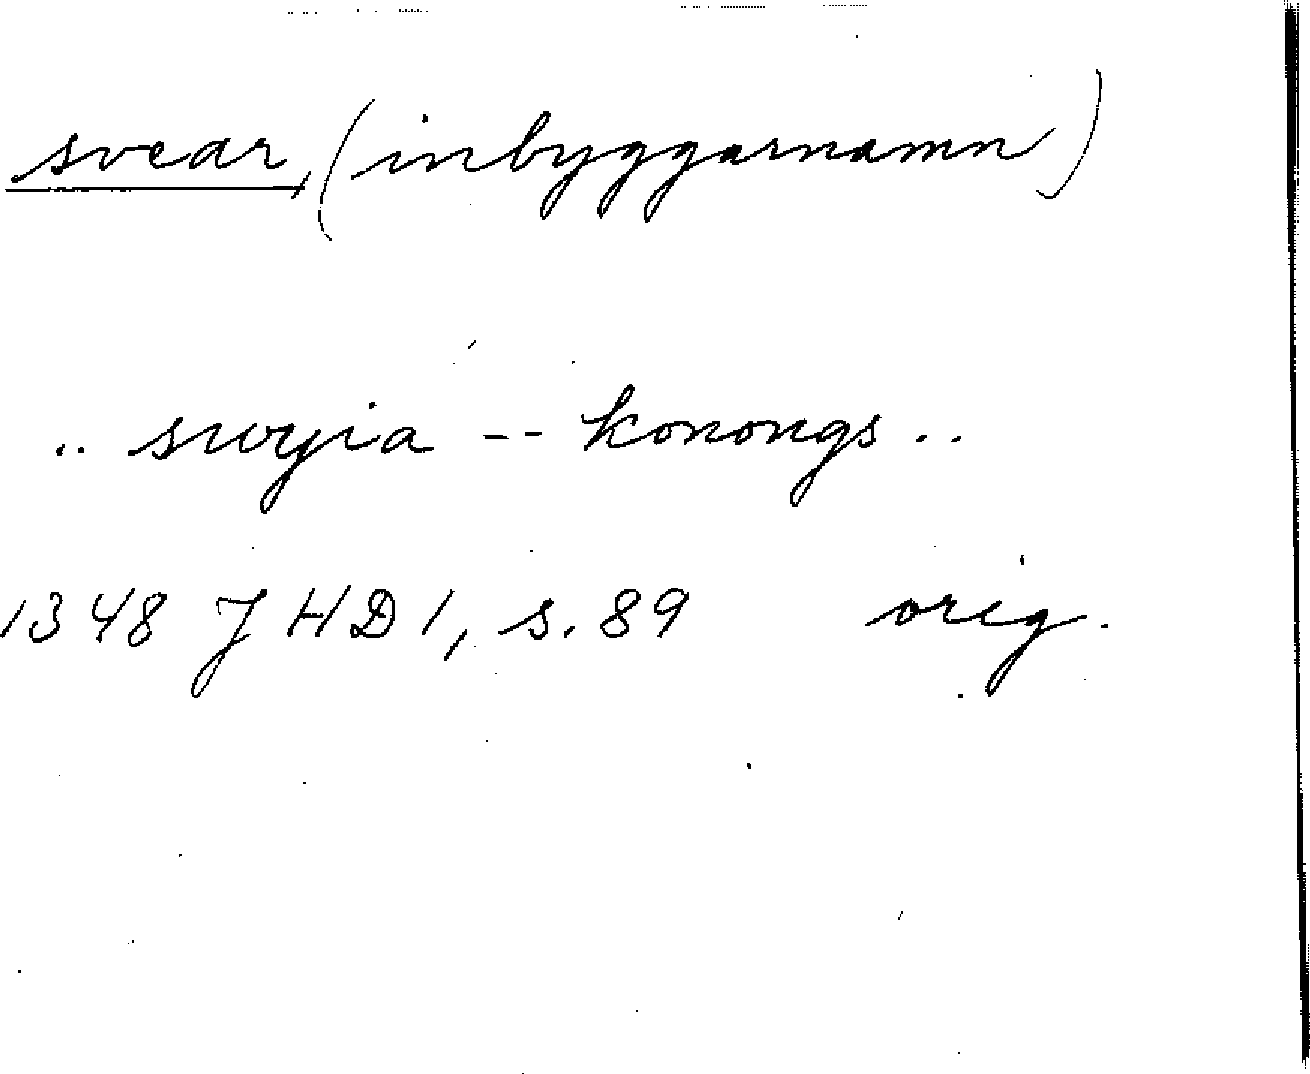 svear, (inbyggarnamn)
.. swyia -- konongs ..
1348 JHD 1, s. 89 orig.